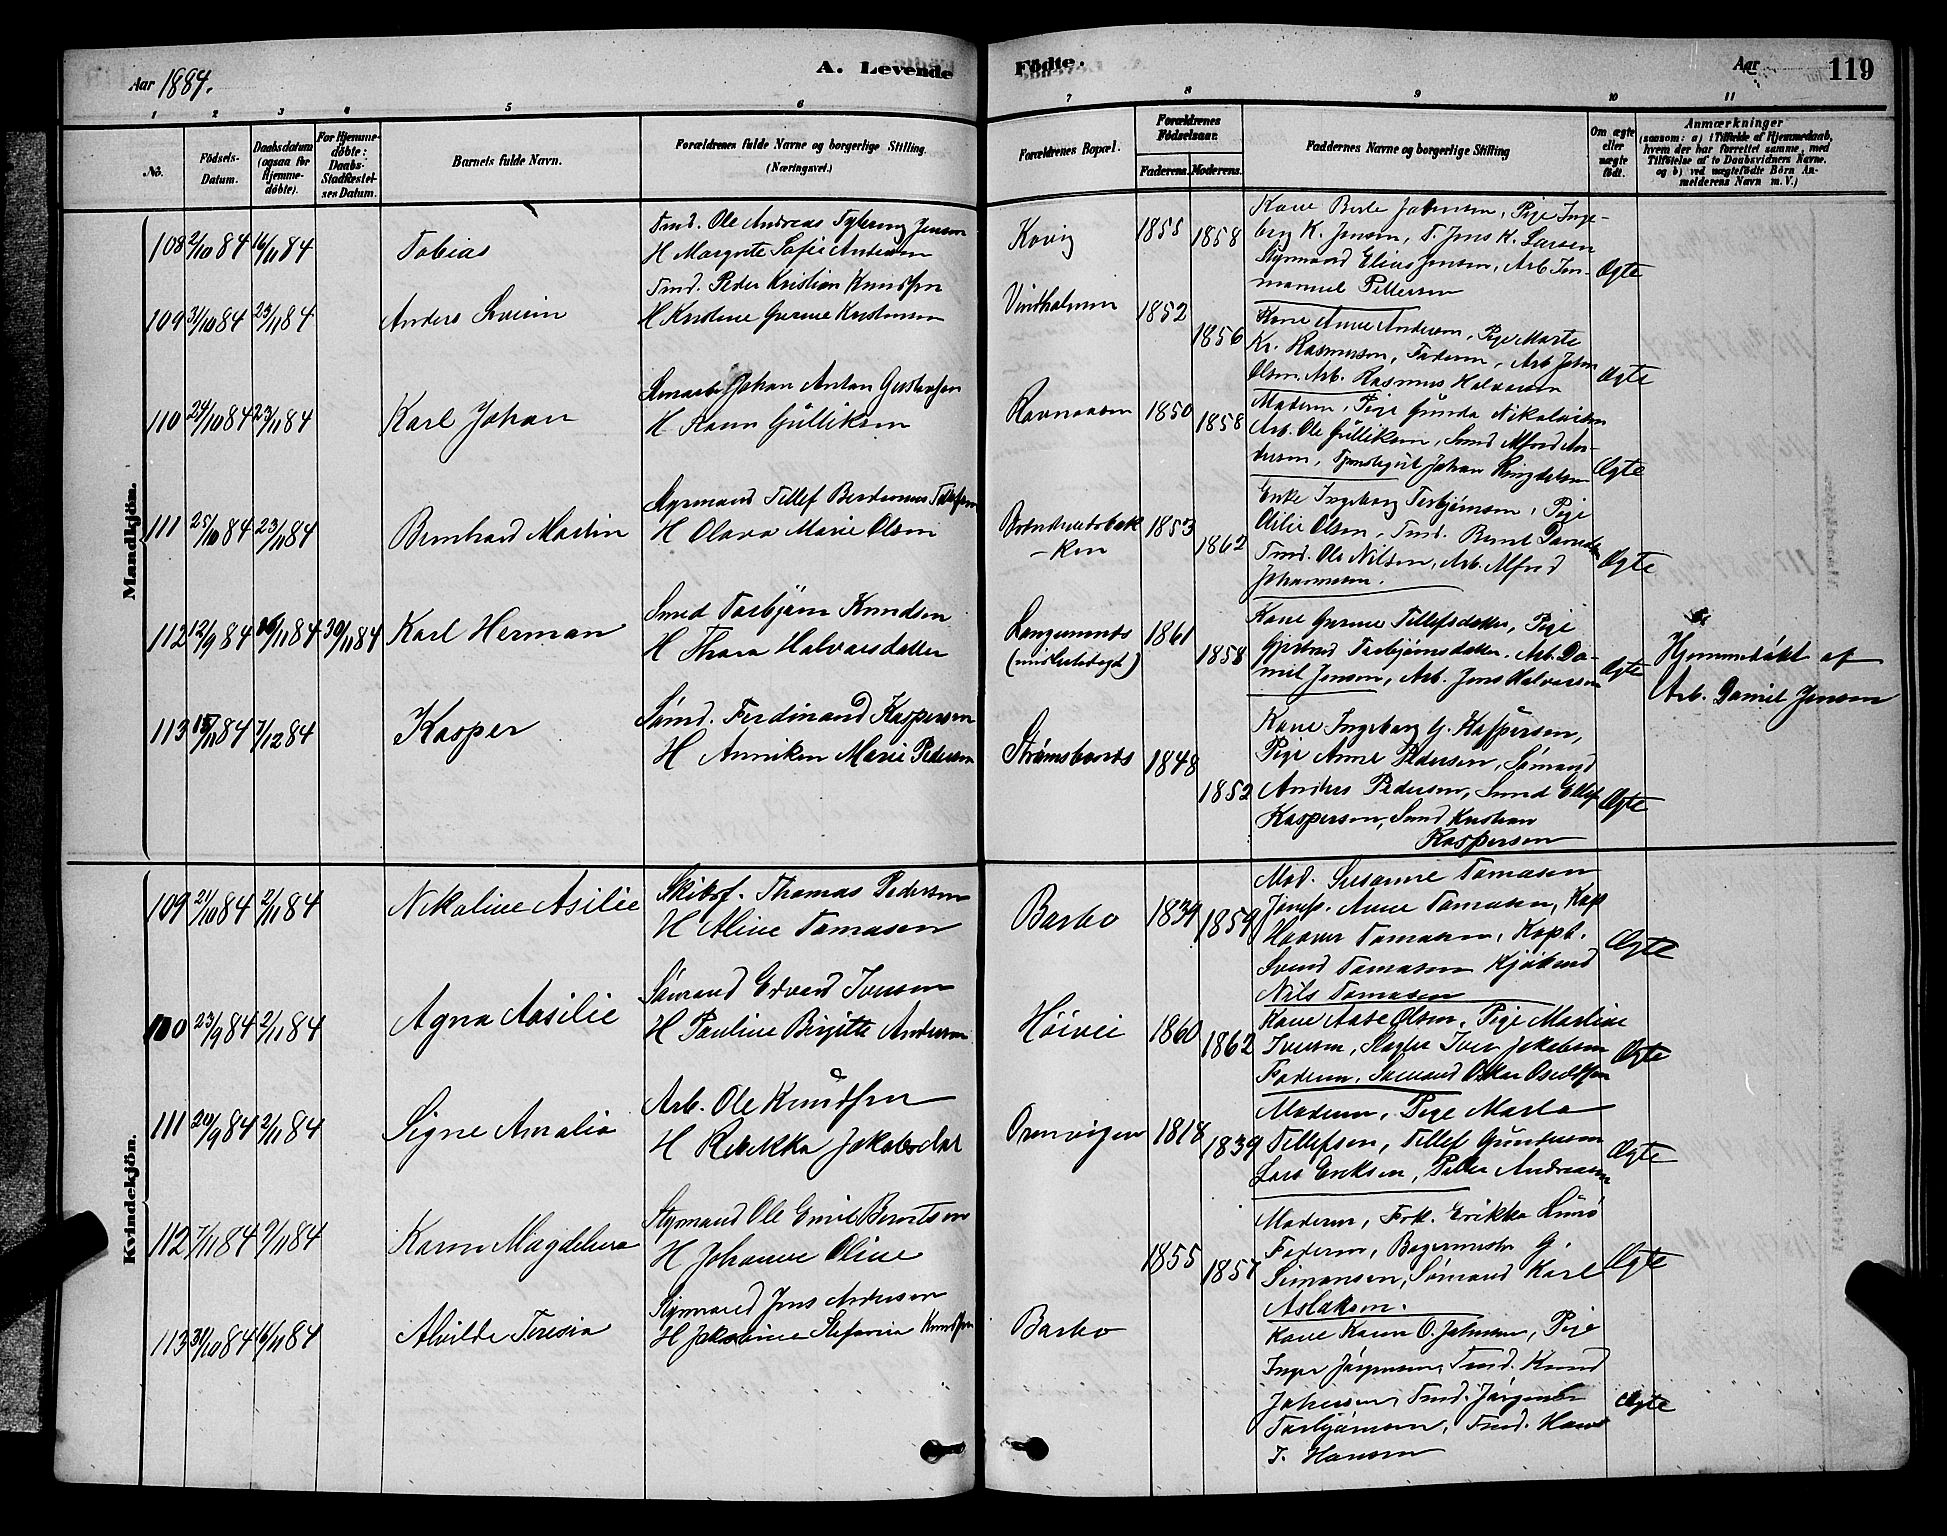 Aar 1884.
A. Levende
Fødte.
Aar
119
1 2 3 4 5 6 7 8 9 10 11
No.
Fødsels-
Datum.
Daabsdatum
(ogsaa for
Hjemme-
døbte).
For Hjemme-
døbte:
Daabs-
Stadfæstel-
ses Datum.
Barnets fulde Navn.
Forældrenes fulde Navne og borgerlige Stilling.
(Næringsvei.)
Forældrenes Bopæl.
Forældrenes
Fødselsaar.
Faderens.
Moderens.
Faddernes Navne og borgerlige Stilling
Om ægte
eller
uægte
født.
Anmærkninger
(saasom: a) i Tilfælde af Hjemmedaab,
hvem der har forrettet samme, med
Tilføielse af to Daabsvidners Navne.
og b) ved uægtefødte Børn An-
melderens Navn m. V.)
Mandkjön.
108 2/10 84 16/11 84
Tobias
Tmd. Ole Andreas Tyberg Jensen
H Margrete Sofie Andersen
Kovig
1855
1858
Kone Berte Johnsen, Pige Inge-
borg K. Jensen, T. Jens K. Larsen
Styrmand Elias Jensen, Arb Im-
manuel Pettersen
Ægte
109 31/10 84 23/11 84
Anders Severin
Tmd. Peder Kristian Knudsen
H Kristine Gurine Kristensen
Vindholmen
1852
1856
Kone Anne Andersen, Pige Marte
Kr. Rasmussen, Faderen, Arb John
Olsen. Arb. Rasmus Halvorsen
Ægte
110 24/10 84 23/11 84
Karl Johan
Johan Anton Gustafsen
H Karen Gulliksen
Ravnaasen
1850
1858
Moderen, Pige Gunda Nikolaisen
Arb. Ole Gulliksen, Smed Alfred An-
dersen, Tjenstegut Johan Ringdalen
Ægte
111 25/10 84 23/11 84
Bernhard Martin
Styrmand Tellef Berdinus Tellefsen
H Olava Marie Olsen
1853
1862
Enke Ingeborg Terbjørnsen, Pige
Olilie Olsen, Tmd. Bernt Danielsen
Tmd. Ole Nilsen, Arb. Alfred
Johannesen.
Ægte
112 12/9 84 16/11 84 30/11 84
Karl Herman
Smed Torbjørn Knudsen
H Thora Halvorsdatter
Langemyr
1861
1858
Kone Gurine Tellefsdatter, Pige
Gjertrud Torbjørnsdatter. Arb. Da-
niel Jensen, Arb. Jens Halvorsen
Ægte
Hjemmedøbt af
Arb. Daniel Jensen
113 15/11 84 7/12 84
Kasper
Sømd. Ferdinand Kaspersen
H Anniken Marie Pedersen
Strømsbonds
1848
1852
Kone Ingeborg G. Kaspersen,
Pige Anne Pedersen, Sømand
Anders Pedersen, Smd Ellef
Kaspersen, Smd Kristian
Kaspersen
Ægte
Kvindekjön.
109 21/10 84 2/11 84
Nikoline Asilie
Skibsf. Thomas Pedersen
H Aline Tomasen
Barbo
1839
1859
Mad. Susanne Tomasen
Jomf. Anne Tomasen, Kap
Haaver Tomasen, Kapt.
Svend Tomasen Kjøbmd
Nils Tomasen
Ægte
110 23/9 84 2/11 84
Agna Aasilie
Sømand Edvard Iversen
H Pauline Birgitte Andersen
Høivei
1860
1862
Kone Aase Olsen, Pige Martine
Iversen, Slagter Iver Jakobsen
Faderen, Sømand Oskar Osuldsen
Ægte
111 20/9 84 2/11 84
Signe Amalia
Arb. Ole Knudsen
H Rebekka Jakobsdat
Ormvigen
1818
1839
Moderen, Pige Marta
Tellefsen, Tellef Gundersen
Lars Eriksen, Peder Andreasen
Ægte
112 7/11 84 9/11 84
Karen Magdelena
Styrmand Ole Emil Berntsen
H Johanne Oline
1855
1857
Moderen, Frk. Erikka Lund
Faderen, Bagermester G.
Simonsen, Sømand Karl
Aslaksen.
Ægte
113 31/10 84 16/11 84
Alvilde Teresia
Styrmand Jens Andersen
H Jakobine Stefania Knudsen
Barbo
Kone Karen O. Johnsen, Pige
Inger Jørgensen, Tmd. Knud
Johnsen, Tmd. Jørgen
Torbjørnsen, Tmd. Hans
T. Hansen
Ægte